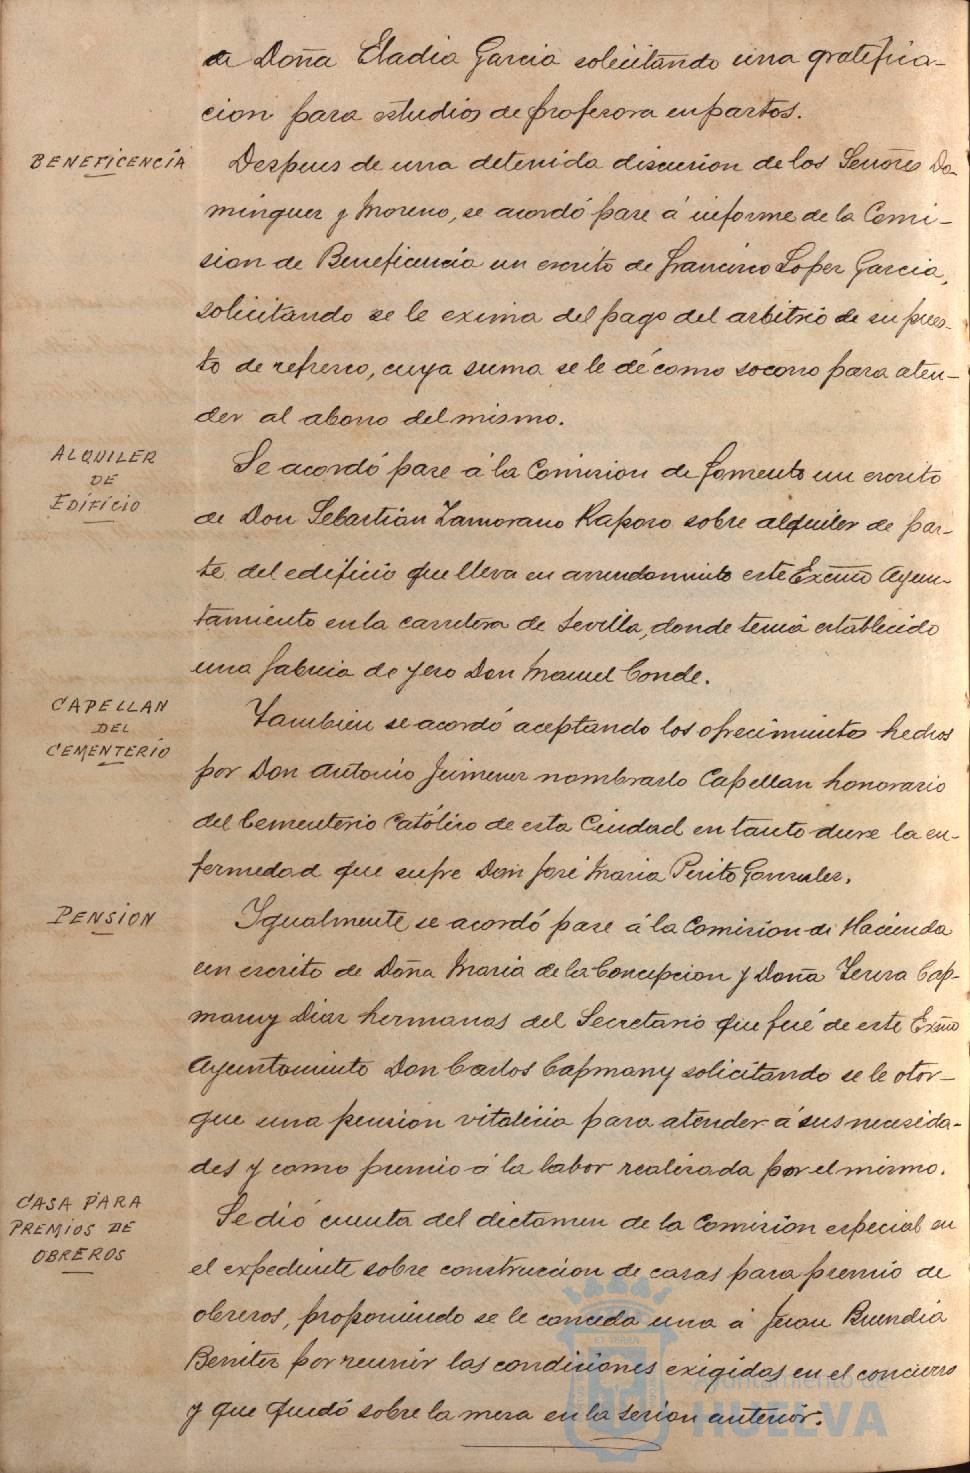 a Doña Eladia Garcia solicitando una gratifica-
cion para estudios de profesora en partos.
BENEFICENCÍA
Despues de una detenida discusion de los Señores Do-
minguez y Moreno, se acordó pase á informe de la Comi-
sion de Beneficencia un escrito de Francisco Lopez Garcia,
solicitando se le exima del pago del arbitrio de su pues-
to de refresco, cuya suma se le dé como socorro para aten-
der al abono del mismo.
ALQUILER
DE
EDIFICIO
Se acordó pase á la Comision de fomento un escrito
de Don Sebastián Zamorano Raposo sobre alquiler de par-
te del edificio que lleva en arrendamiento este Excmo Ayun-
tamiento en la carretera de Sevilla, donde tenia establecido
una fabrica de yeso Don Manuel Conde.
CAPELLAN
DEL
CEMENTERIO
Tambien se acordó aceptando los ofrecimientos hechos
por Don Antonio Jimenez nombrarlo Capellan honorario
del Cementerio Católico de esta Ciudad en tanto dure la en-
fermedad que sufre Don José Maria Perito Gonzalez.
PENSION
Igualmente se acordó pase á la Comision de Hacienda
un escrito de Doña Maria de la Concepcion y Doña Teresa Cap-
many Diaz hermanas del Secretario que fué de este Excmo
Ayuntamiento Don Carlos Capmany solicitando se le otor-
gue una pension vitalicia para atender á sus necesida-
des y como premio á la labor realizada por el mismo.
CASA PARA
PREMIOS DE
OBREROS
Se dió cuenta del dictamen de la Comision especial en
el expediente sobre construccion de casas para premio de
obreros, proponiendo se le conceda una á Juan Buendia
Benitez por reunir las condiciones exigidas en el concurso
y que quedó sobre la mesa en la sesion anterior.
Ayuntamiento de
HUELVA